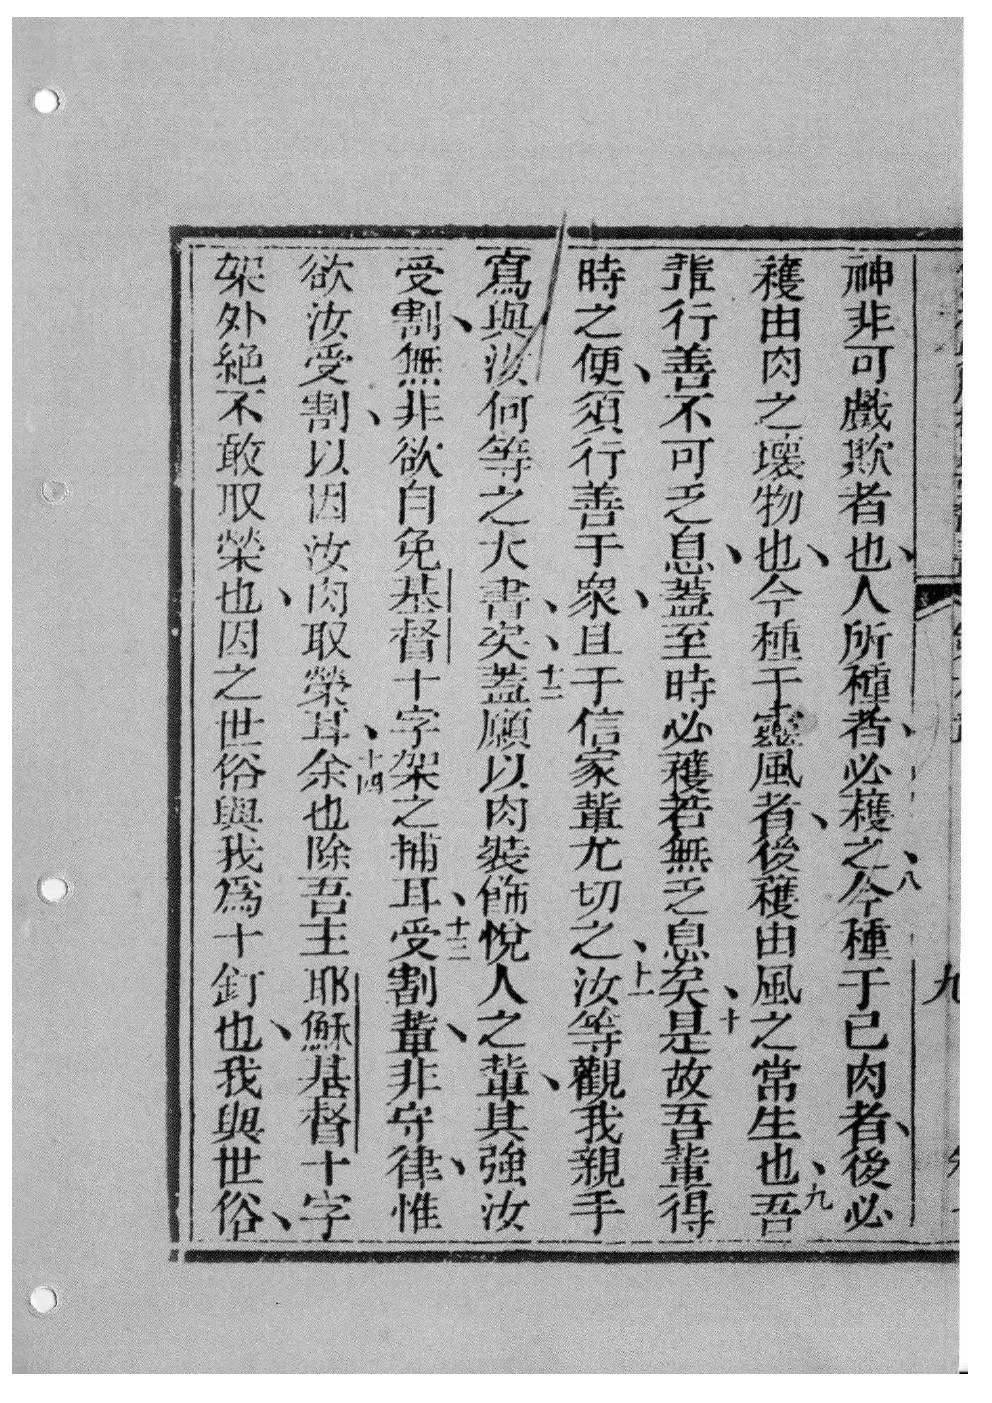 神非可戲欺者也、人所種者、必穫之、八今種于己肉者、後必
穫由肉之壞物也、今種于靈風者、後穫由風之常生也、九吾
輩行善不可乏息、蓋至時必穫若無乏息矣、十是故吾輩得
時之便、須行善于衆、且于信家輩尤切之、十一汝等觀我親手
寫與汝何等之大書、矣、十二蓋願以肉裝飾悅人之輩、其強汝
受割、無非欲自免基督十字架之捕耳、十三受割輩、非守律、惟
欲汝受割、以因汝肉取榮耳、十四余也除吾主耶穌基督十字
架外絶不敢取榮也、因之世俗與我爲十釘也、我與世俗、
九